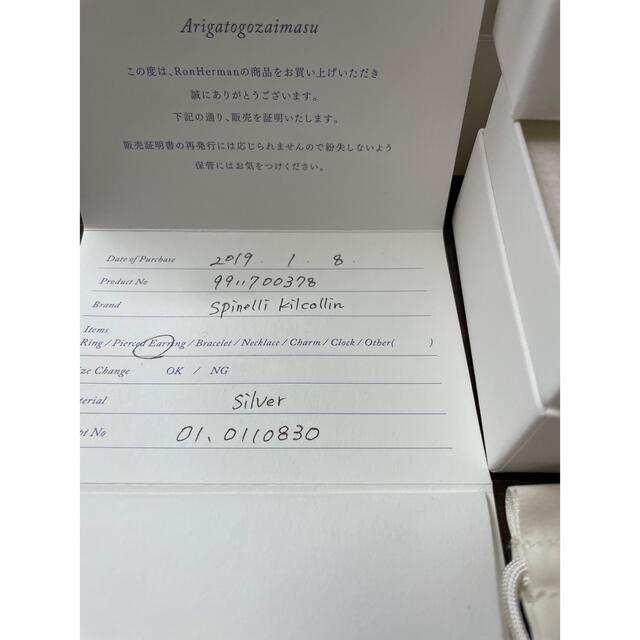 Arigatogozaimasu
この度は、RonHermanの商品をお買い上げいただき
誠にありがとうございます。
下記の通り、販売を証明いたします。
販売証明書の再発行には応じられませんので紛失しないよう
保管にはお気をつけください。
Date of Purchase 2019. 1. 8.
Product No 9911700378
Brand Spinelli Kilcollin
Items
Ring / Pierced Earring / Bracelet / Necklace / Charm / Clock / Other( )
ze Change OK / NG
terial Silver
pt No 01、0110830